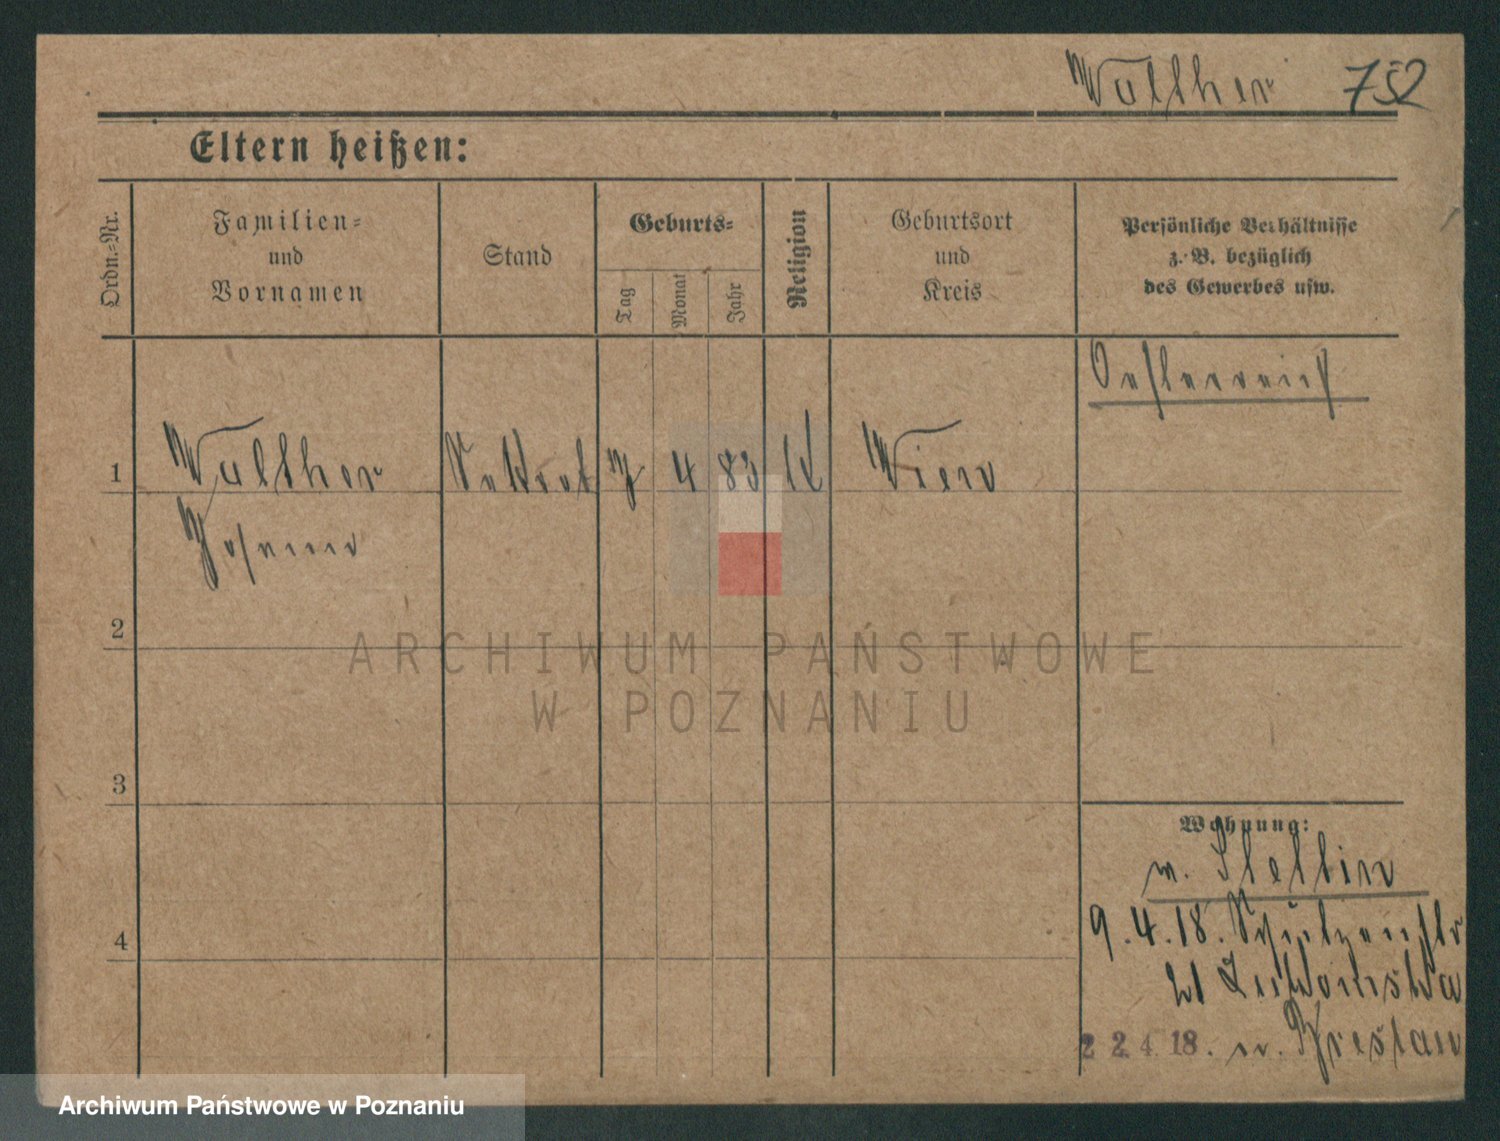 Walther 752
Eltern heißen:
Ordn.-Nr.
Familien-
und
Vornamen
Stand
Geburts-
Tag
Monat
Jahr
Religion
Geburtsort
und
Kreis
Persönliche Verhältnisse
z. B. bezüglich
des Gewerbes usw.
Oesterreich
1 Walther 4 83 K Wien
2
3
4
Wohnung:
n. Stettin
9.4.18. Schützenstr
21 Lutkowska
22 4. 18. n. Breslau
ARCHIWUM PAŃSTWOWE
W POZNANIU
Archiwum Państwowe w Poznaniu